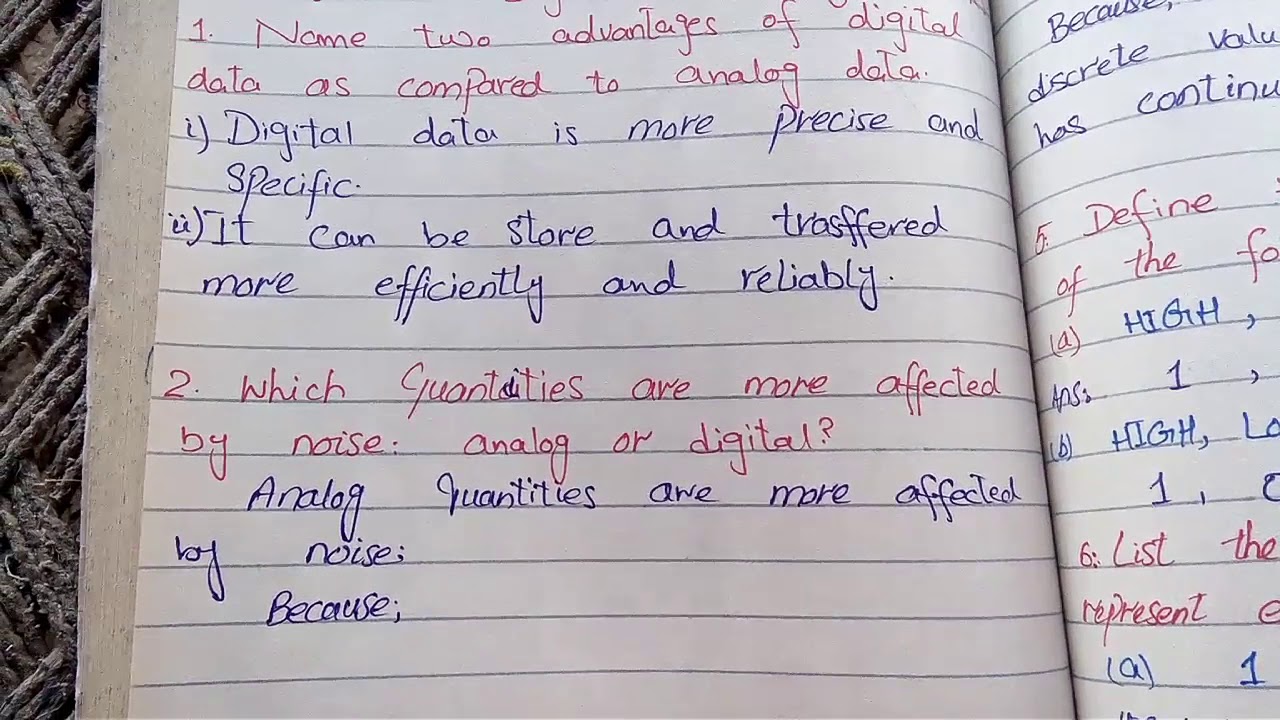 1. Name two advantages of digital
data as compared to analog data.
i) Digital data is more precise and
specific.
ii) It can be store and trasffered
more efficiently and reliably.
2. Which Quantities are more affected
by noise: analog or digital?
Analog Quantities are more affected
by noise;
Because;
Because,
discrete
has
5. Define
of the
(a) HIGH,
Ans: 1 ,
(b) HIGH,
1,
6: List the
represent
(a) 1